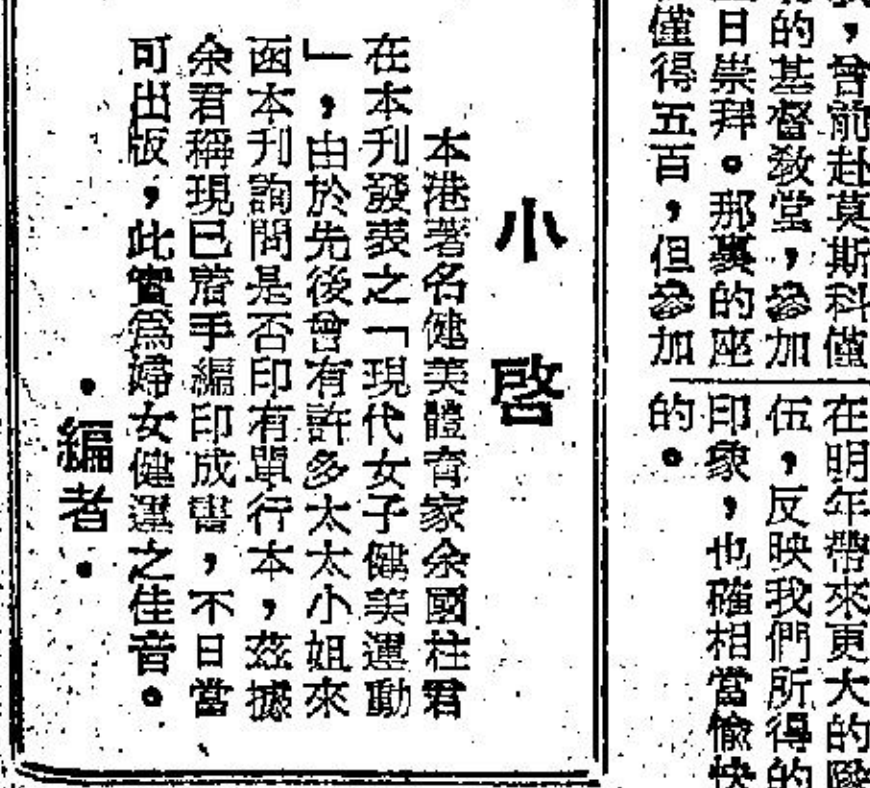 ，曾前赴莫斯科僅
的基督教堂，參加
日崇拜。那裏的座
僅得五百，但參加
在明年帶來更大的隊
伍，反映我們所得的
印象，也確相當愉快
的。
小啓
本港著名健美體育家余國柱君
在本刊發表之「現代女子健美運動
」，由於先後曾有許多太太小姐來
函本刊詢問是否印有單行本，茲據
余君稱現已着手編印成書，不日當
可出版，此實爲婦女健運之佳音。
・編者・